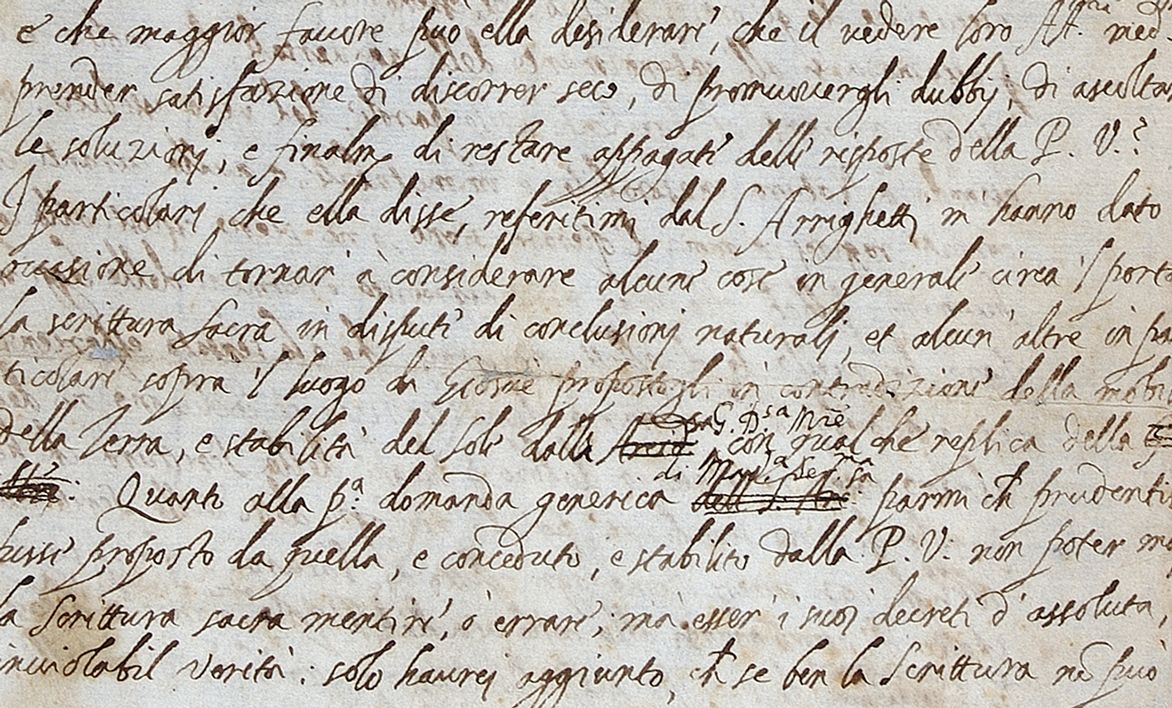 e che maggior favore può ella desiderare, che il vedere loro Alt.e med
prender satisfazione di discorrer seco, di promuovergli dubbij, di ascolta
le soluzionj, e finalm.e di restare appagate delle risposte della P. V.?
I particolarj che ella disse, referitimi dal S. Arrighetti m hanno dato
occasione di tornar à considerare alcune cose in generale circa 'l porta
la scrittura sacra in dispute di conclusionj naturali, et alcun' altre in par
ticolare sopra 'l luogo di Giosuè propostogli in contradizione della mobi
della Terra, e stabilità del Sole dalla con qualche replica della
Quanto alla p.a domanda generica di Mad.a Ser.ma parmi ch prudente
fusse proposto da quella, e conceduto, e stabilito dalla P. V. non poter ma
la Scrittura sacra mentire, ò errare, ma esser i suoi decreti d' assoluta,
inviolabil verità: solo haurej aggiunto, ch se ben la Scrittura nō può